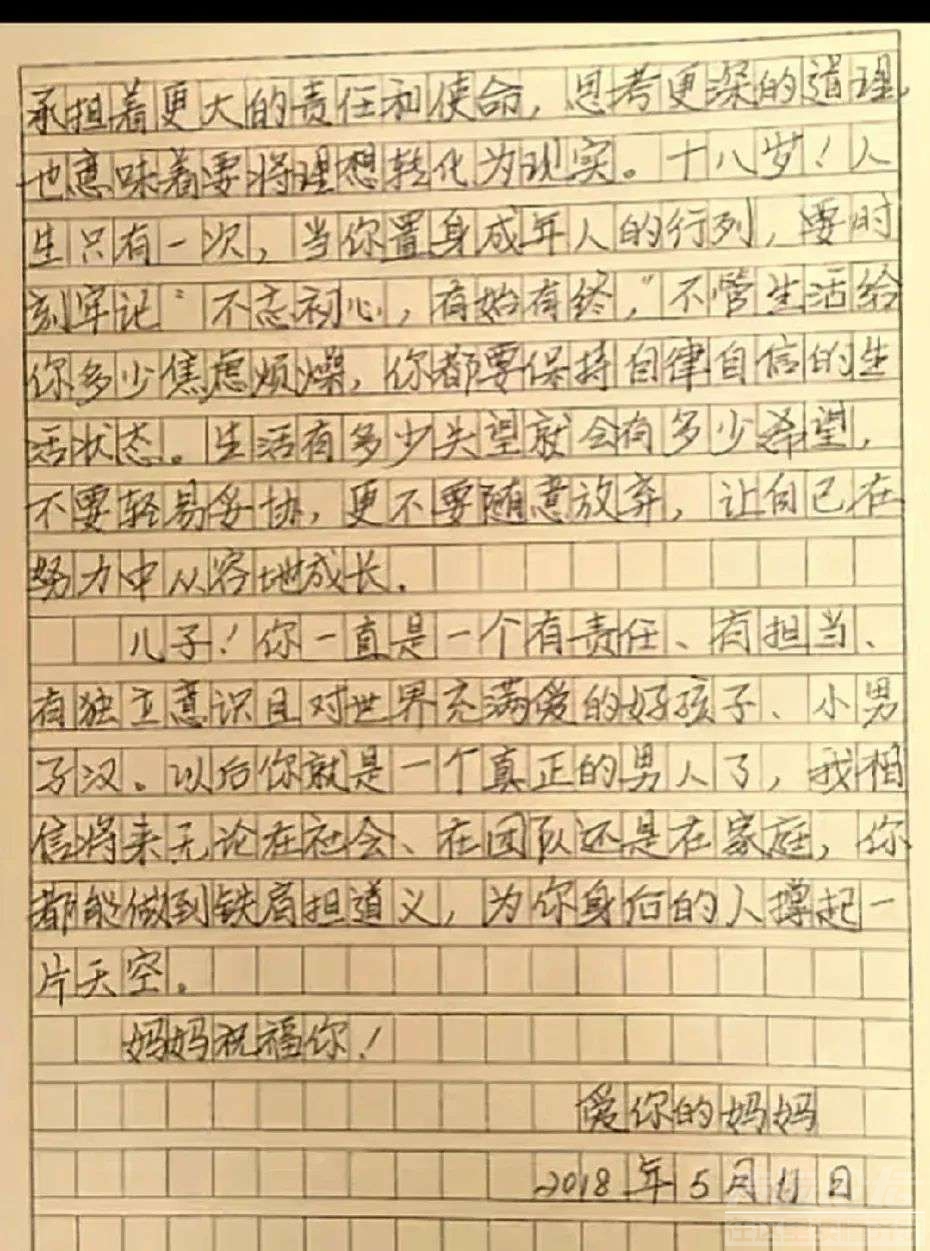 承担着更大的责任和使命，思考更深的道理，
也意味着要将理想转化为现实。十八岁！人
生只有一次，当你置身成年人的行列，要时
刻牢记“不忘初心，有始有终，”不管生活给
你多少焦虑烦燥，你都要保持自律自信的生
活状态。生活有多少失望就会有多少希望，
不要轻易妥协，更不要随意放弃，让自己在
努力中从容地成长.
儿子！你一直是一个有责任、有担当、
有独立意识且对世界充满爱的好孩子、小男
子汉。以后你就是一个真正的男人了，我相
信将来无论在社会、在团队还是在家庭，你
都能做到铁肩担道义，为你身后的人撑起一
片天空。
妈妈祝福你！
爱你的妈妈
2018年5月11日